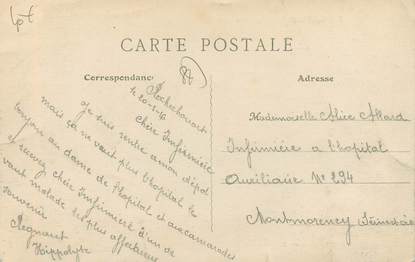 Lot
CARTE POSTALE
Correspondance
87
Adresse
Rochechouart
le 20-5-16
Chère Infirmière
Je suis rentré a mon dépot
mais ça ne vaut plus l'hopital le
bonjour au dame de l'hopital et aux camarades
et recevez chère Infirmière d'un de
vaut malade ses plus affectueux
souvenir
Regnant
Hippolyte
Mademoiselle Alice Allard
Infirmière a l'hopital
Auxiliaire N° 294
Montmorency